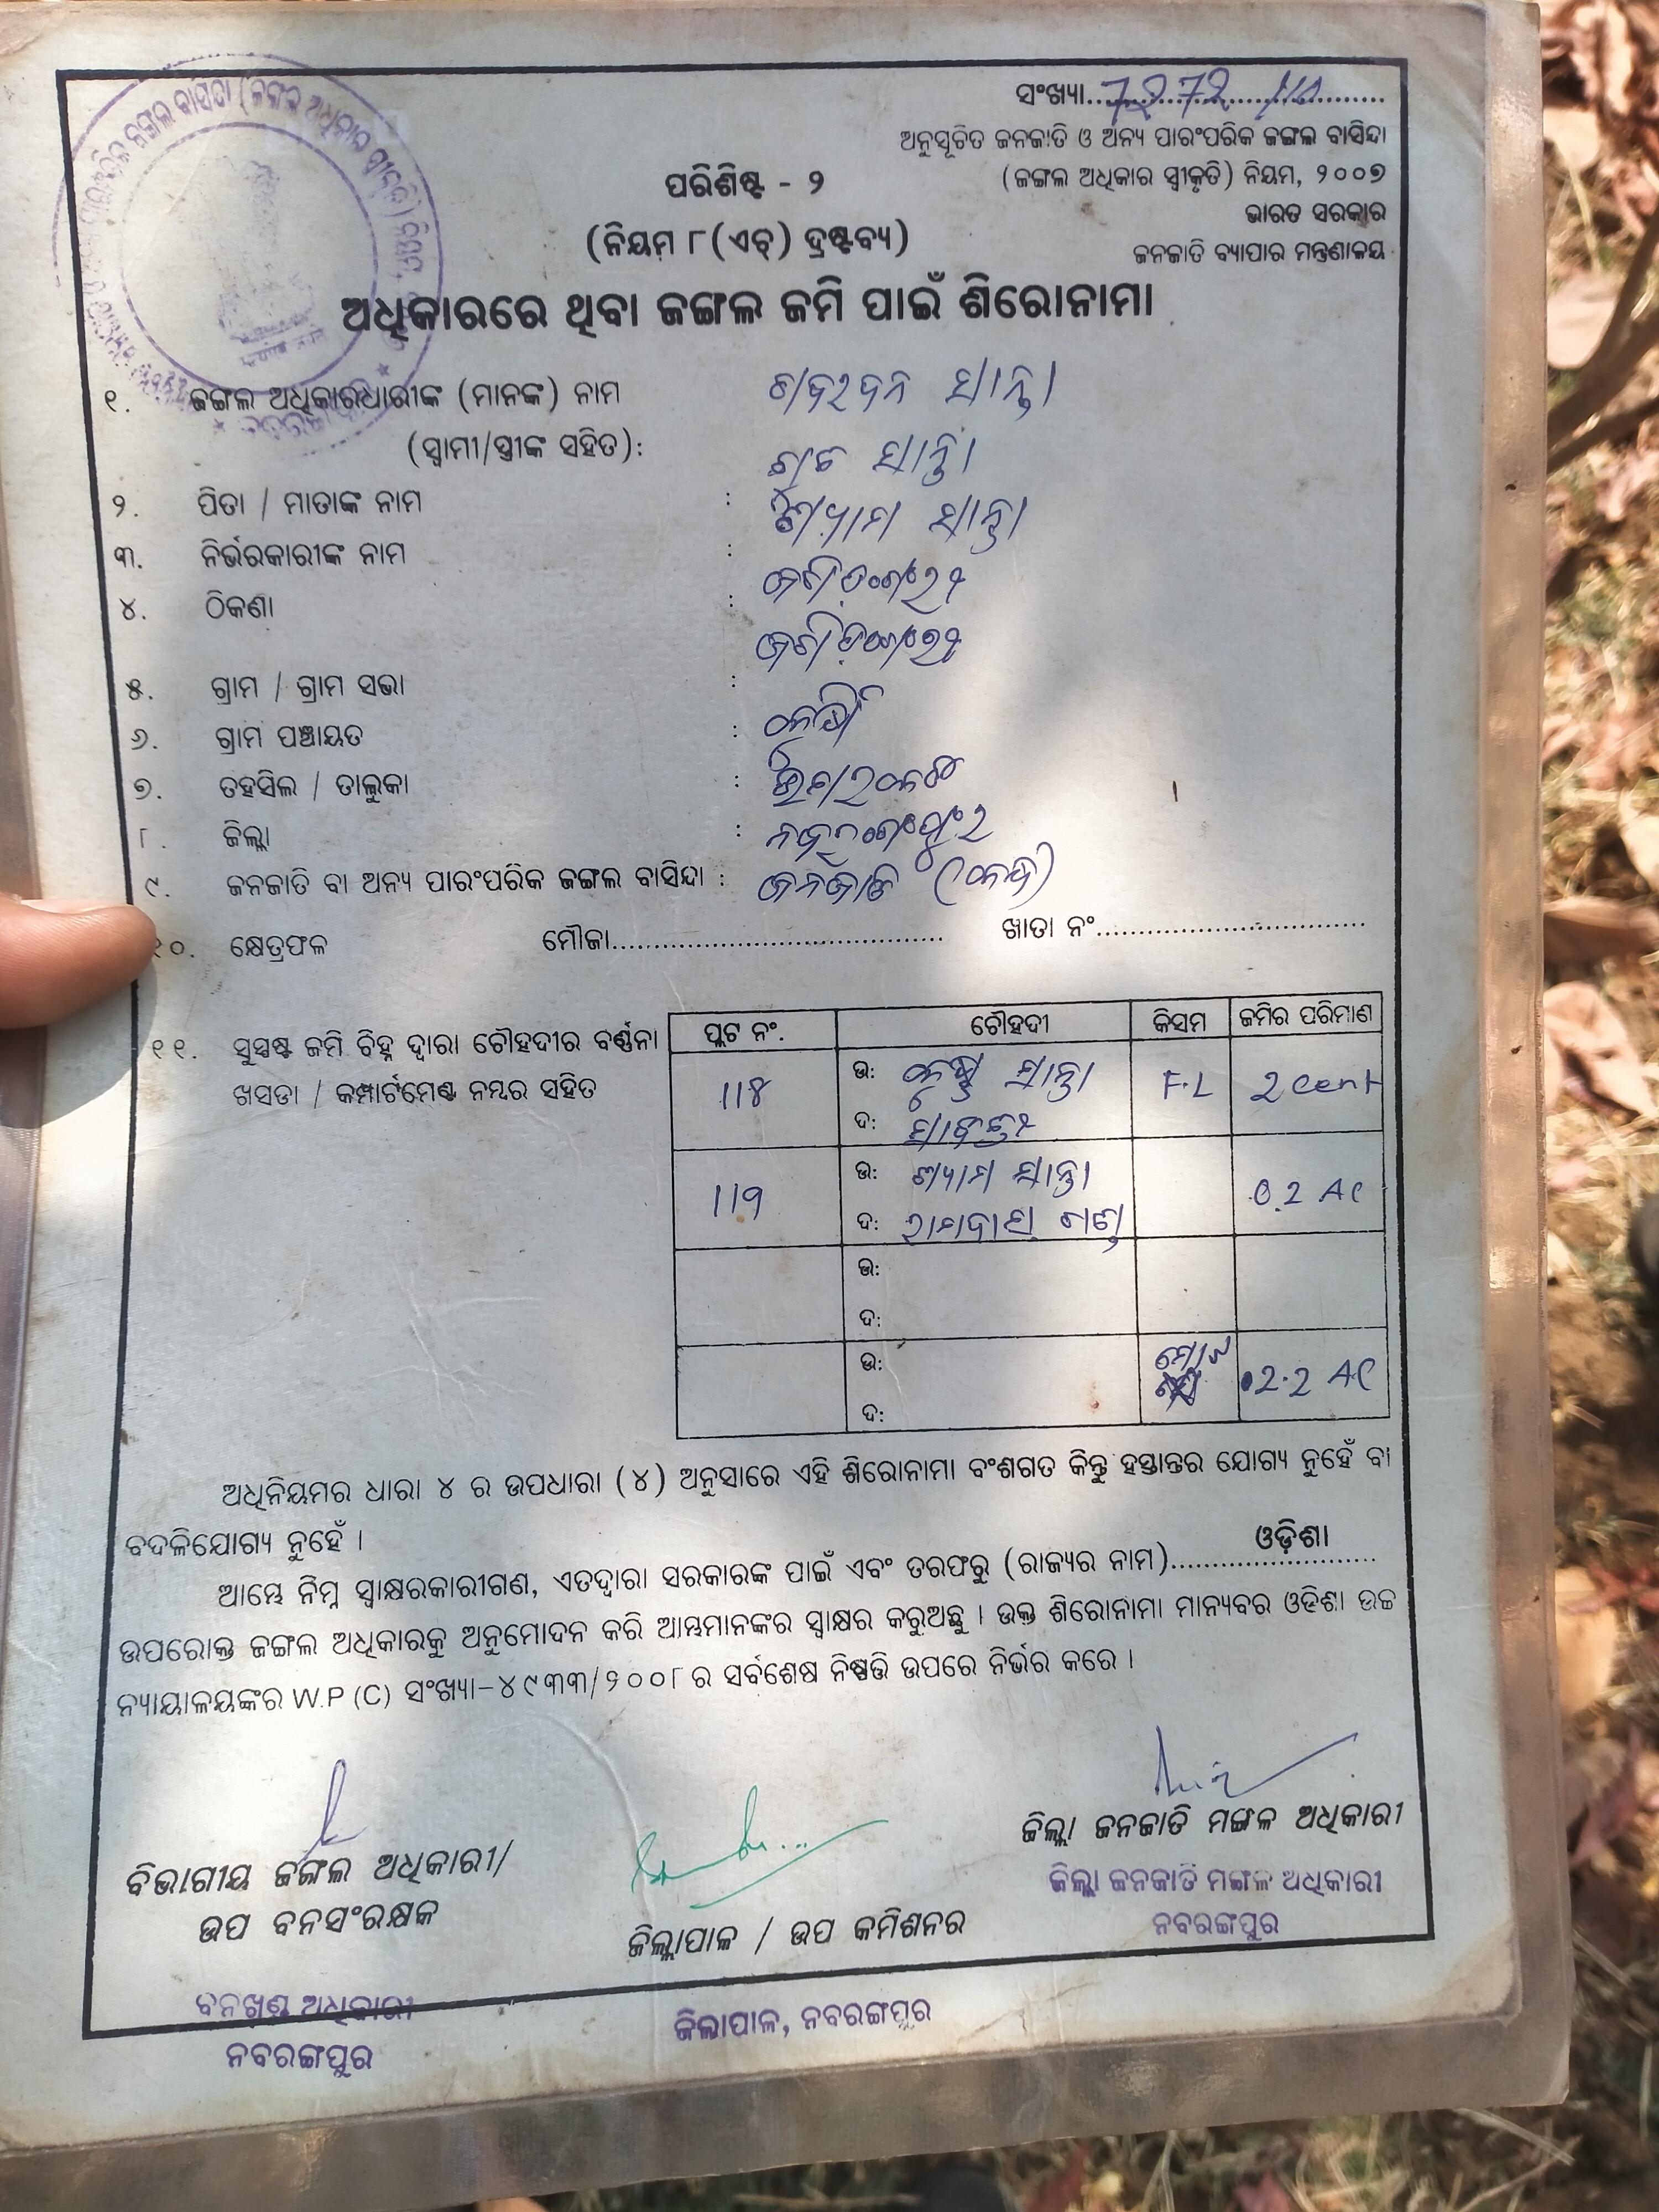 ସଂଖ୍ୟା..........
ଅନୁସୂଚିତ ଜନଜାତି ଓ ଅନ୍ୟ ପାରଂପରିକ ଜଙ୍ଗଲ ବାସିନ୍ଦା
(ଜଙ୍ଗଲ ଅଧିକାର ସ୍ୱୀକୃତି) ନିୟମ, ୨୦୦୭
ଭାରତ ସରକାର
ଜନଜାତି ବ୍ୟାପାର ମନ୍ତ୍ରଣାଳୟ
ପରିଶିଷ୍ଟ - ୨
(ନିୟମ ୮(ଏଚ୍) ଦ୍ରଷ୍ଟବ୍ୟ)
ଅଧିକାରରେ ଥିବା ଜଙ୍ଗଲ ଜମି ପାଇଁ ଶିରୋନାମା
୧. ଜଙ୍ଗଲ ଅଧିକାରଧାରୀଙ୍କ (ମାନଙ୍କ) ନାମ ସାନ୍ତା
(ସ୍ୱାମୀ/ସ୍ତ୍ରୀଙ୍କ ସହିତ): ସାନ୍ତା
୨. ପିତା / ମାତାଙ୍କ ନାମ : ଶ୍ୟାମ ସାନ୍ତା
୩. ନିର୍ଭରକାରୀଙ୍କ ନାମ :
୪. ଠିକଣା :
୫. ଗ୍ରାମ / ଗ୍ରାମ ସଭା :
୬. ଗ୍ରାମ ପଞ୍ଚାୟତ :
୭. ତହସିଲ / ତାଲୁକା :
୮. ଜିଲ୍ଲା : ନବରଂଗପୁର
୯. ଜନଜାତି ବା ଅନ୍ୟ ପାରଂପରିକ ଜଙ୍ଗଲ ବାସିନ୍ଦା : ଜନଜାତି
୧୦. କ୍ଷେତ୍ରଫଳ ମୌଜା.......... ଖାତା ନଂ..........
୧୧. ସୁସ୍ପଷ୍ଟ ଜମି ଚିହ୍ନ ଦ୍ୱାରା ଚୌହଦୀର ବର୍ଣ୍ଣନା
ଖସଡା / କମ୍ପାର୍ଟମେଣ୍ଟ ନମ୍ବର ସହିତ
ପ୍ଲଟ ନଂ. ଚୌହଦୀ କିସମ ଜମିର ପରିମାଣ
ଉ: ସାନ୍ତା F.L 2 cent
ଦ:
ଉ: ଶ୍ୟାମ ସାନ୍ତା 0.2 AC
ଦ:
ଉ:
ଦ:
ଉ: 2.2 AC
ଦ:
ଅଧିନିୟମର ଧାରା ୪ ର ଉପଧାରା (୪) ଅନୁସାରେ ଏହି ଶିରୋନାମା ବଂଶଗତ କିନ୍ତୁ ହସ୍ତାନ୍ତର ଯୋଗ୍ୟ ନୁହେଁ ବା
ବଦଳିଯୋଗ୍ୟ ନୁହେଁ ।
ଆମ୍ଭେ ନିମ୍ନ ସ୍ୱାକ୍ଷରକାରୀଗଣ, ଏତଦ୍ୱାରା ସରକାରଙ୍କ ପାଇଁ ଏବଂ ତରଫରୁ (ରାଜ୍ୟର ନାମ)....ଓଡ଼ିଶା....
ଉପରୋକ୍ତ ଜଙ୍ଗଲ ଅଧିକାରକୁ ଅନୁମୋଦନ କରି ଆମ୍ଭମାନଙ୍କର ସ୍ୱାକ୍ଷର କରୁଅଛୁ । ଉକ୍ତ ଶିରୋନାମା ମାନ୍ୟବର ଓଡିଶା ଉଚ୍ଚ
ନ୍ୟାୟାଳୟଙ୍କର W.P (C) ସଂଖ୍ୟା–୪୯୩୩/୨୦୦୮ ର ସର୍ବଶେଷ ନିଷ୍ପତ୍ତି ଉପରେ ନିର୍ଭର କରେ ।
ବିଭାଗୀୟ ଜଙ୍ଗଲ ଅଧିକାରୀ/
ଉପ ବନସଂରକ୍ଷକ
ବନଖଣ୍ଡ ଅଧିକାରୀ
ନବରଙ୍ଗପୁର
ଜିଲ୍ଲାପାଳ / ଉପ କମିଶନର
ଜିଲ୍ଲାପାଳ, ନବରଙ୍ଗପୁର
ଜିଲ୍ଲା ଜନଜାତି ମଙ୍ଗଳ ଅଧିକାରୀ
ଜିଲ୍ଲା ଜନଜାତି ମଙ୍ଗଳ ଅଧିକାରୀ
ନବରଙ୍ଗପୁର